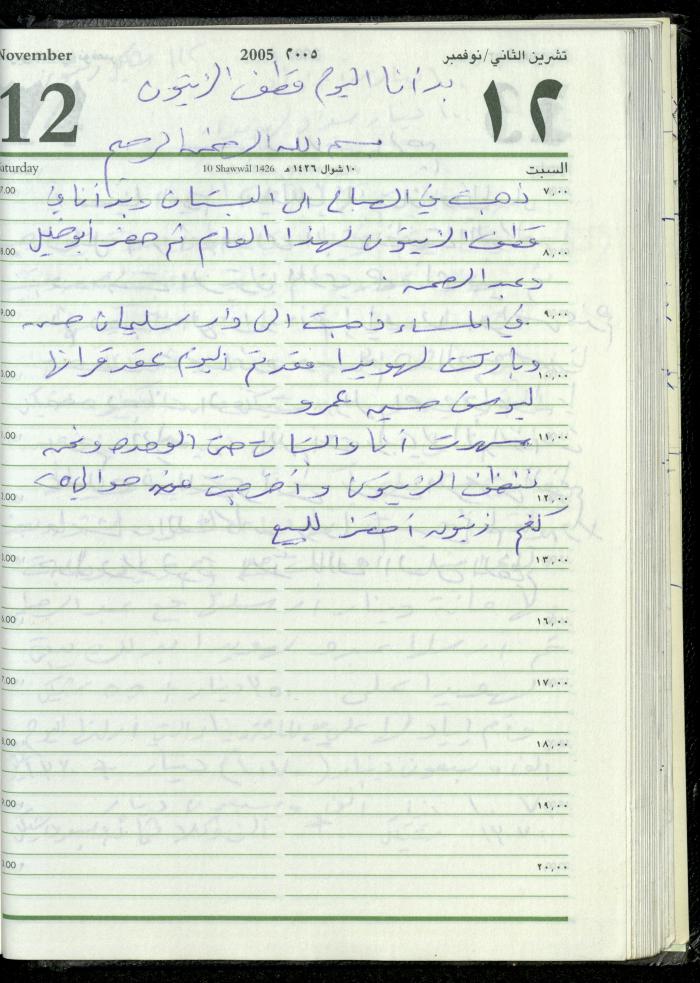 November 2005 ٢٠٠٥ تشرين الثاني/نوفمبر
بدأنا اليوم قطف الزيتون
12 ١٢
بسم الله الرحمن الرحيم
aturday 10 Shawwāl 1426 ١٠ شوال ١٤٢٦ هـ السبت
٧,٠٠ 7.00
ذهبت في الصباح الى البستان وبدأنا في
قطف الزيتون لهذا العام ثم حضر أبو خليل
٨,٠٠ 8.00
وعبد الرحمن .
٩,٠٠ 9.00
في المساء ذهبت الى دار سليمان حسن
وباركت لهويدا فقد تم اليوم عقد قرانها
١٠,٠٠ 0.00
ليوسف حسين عمرو
١١,٠٠ 1.00
سهرت أنا والبنات حتى الوحده ونحن
ننظف الزيتون وأخرجت منه حوالي ٢٥
١٢,٠٠ 2.00
كغم زيتون أخضر للبيع
١٣,٠٠ 3.00
١٦,٠٠ 6.00
١٧,٠٠ 7.00
١٨,٠٠ 8.00
١٩,٠٠ 9.00
٢٠,٠٠ 0.00